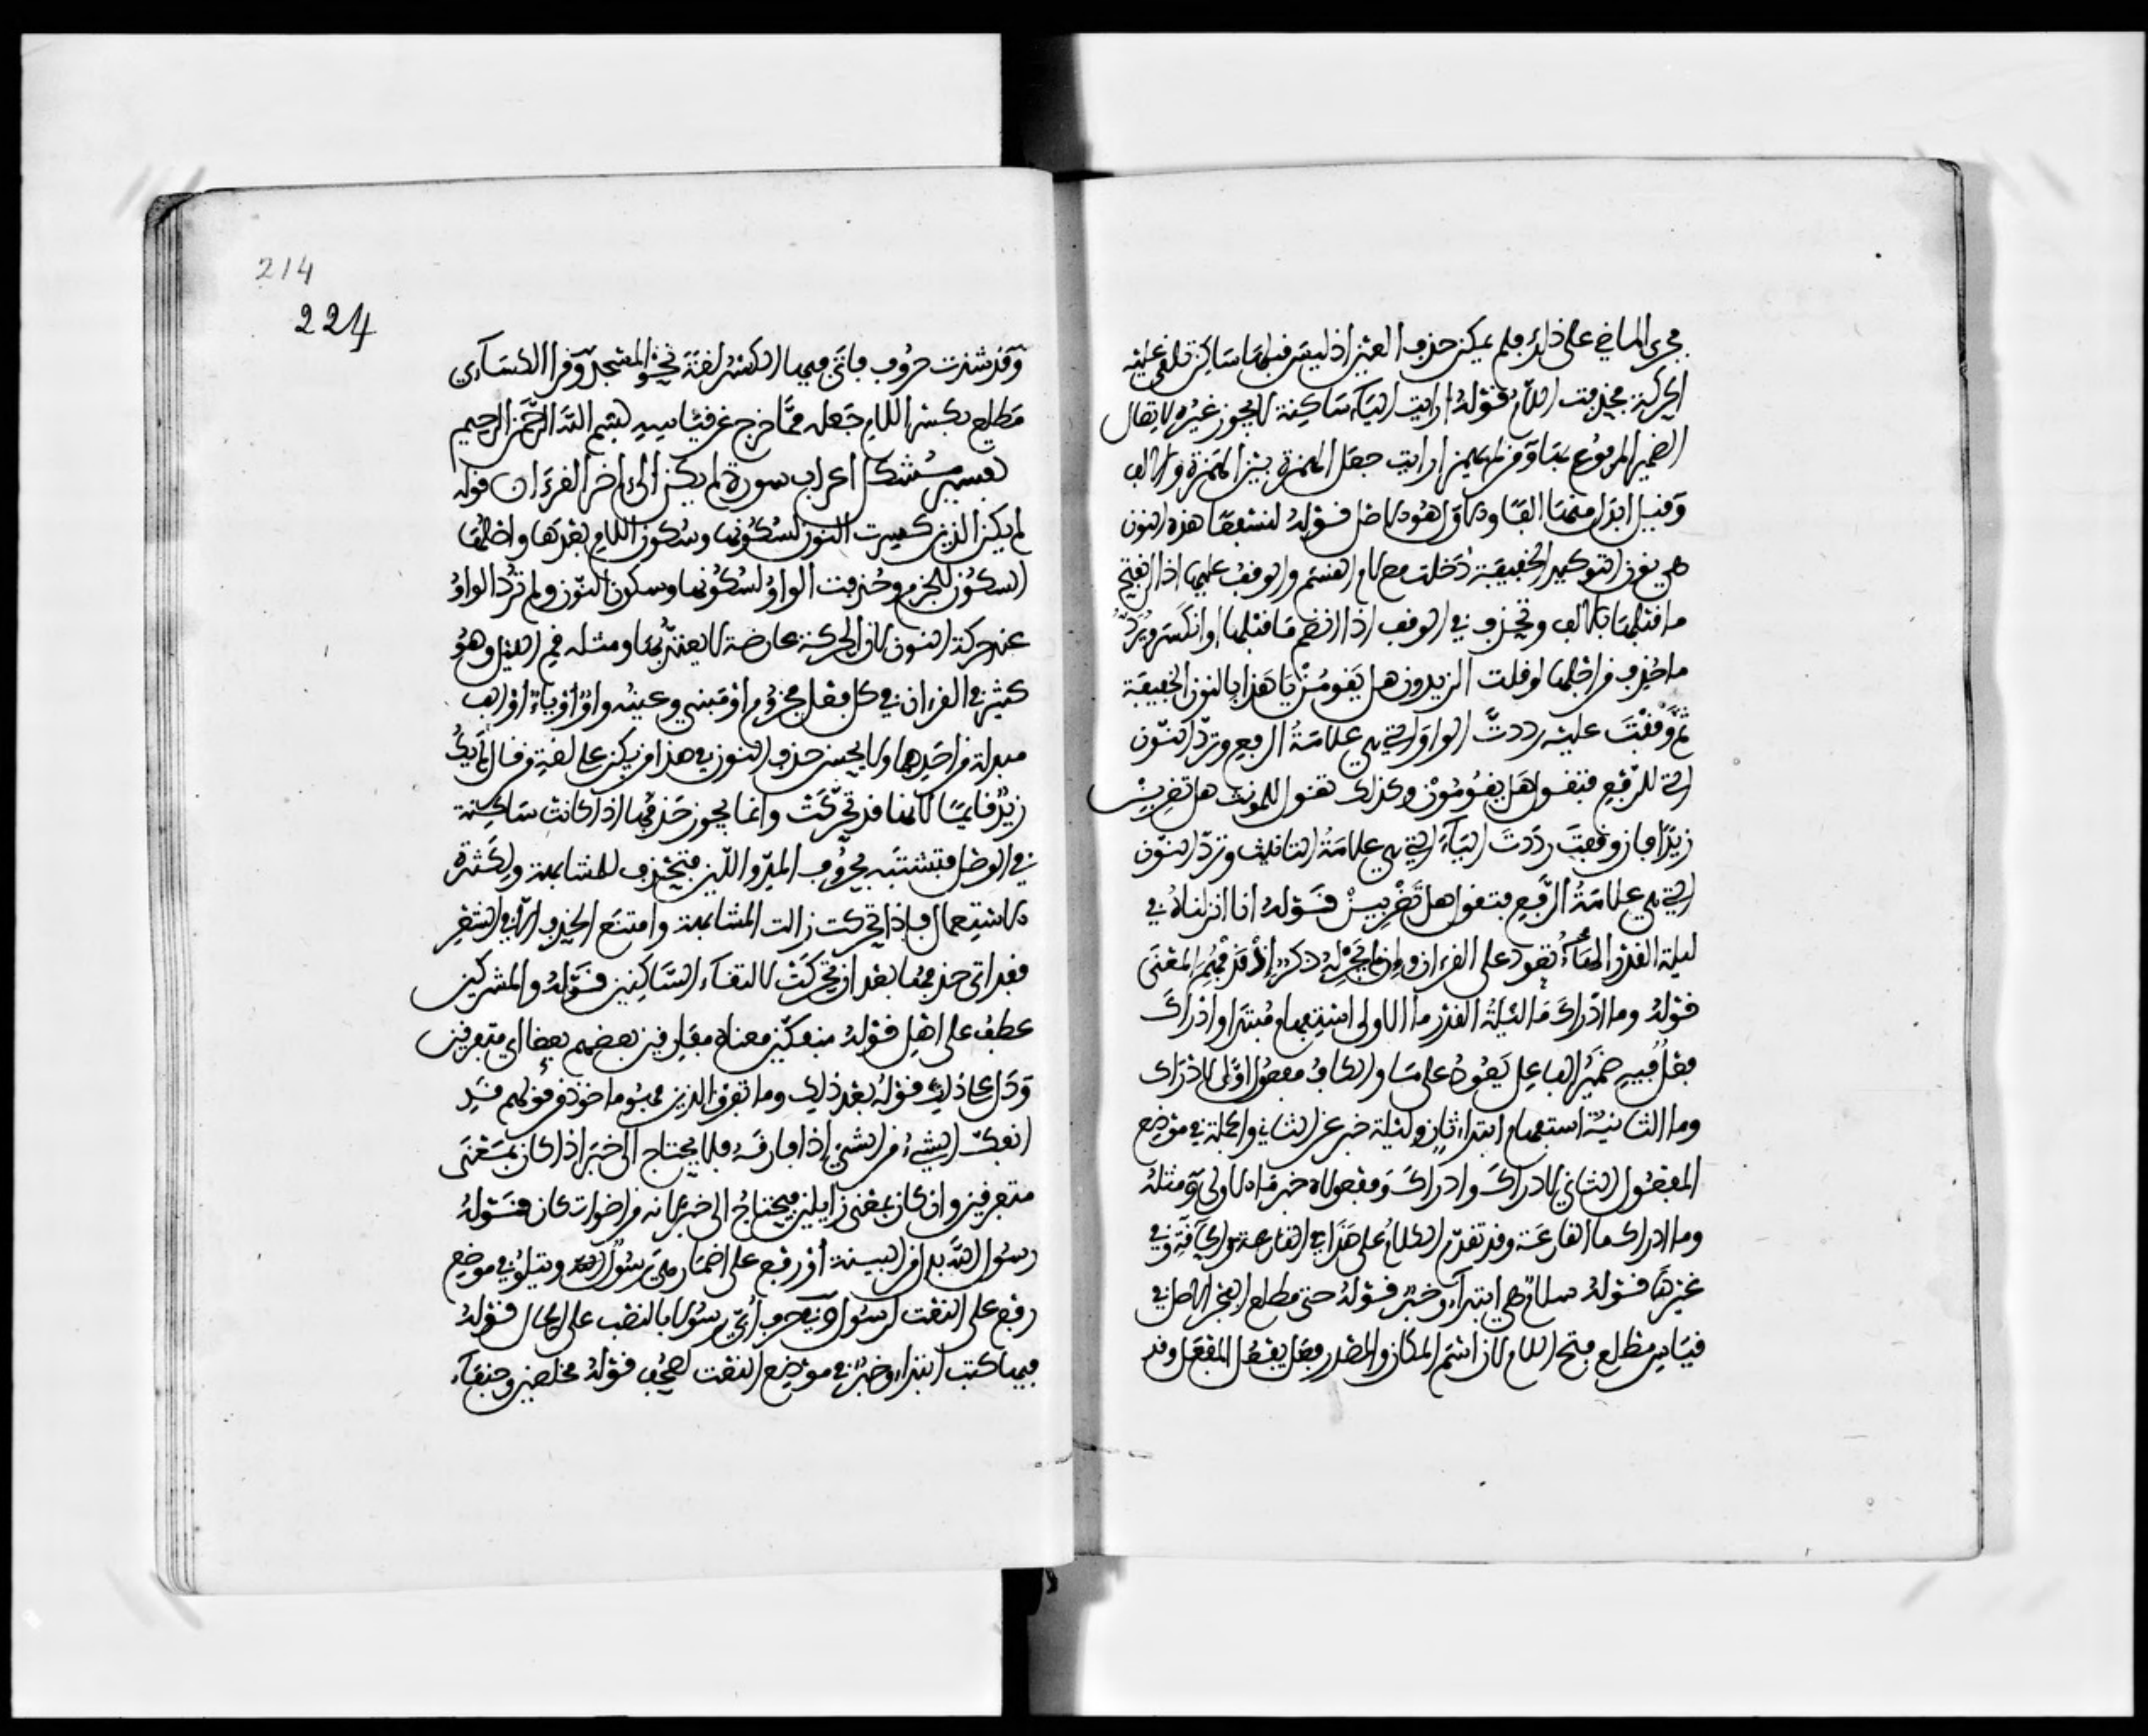 مجرى الماضي على ذلك فلم يمكن حذف العين اذ ليس قبلها ساكن تلقى عليه
الحركة فحذفت اللام قوله ارايت الياء ساكنة لا يجوز غيره لاتصال
الضمير المرفوع بها ومن لم يهمز ارايت جعل الهمزة بين الهمزة والالف
وقيل ابدل منها الفا والاول هو الاصل قوله لنسفعا هذه النون
هي نون التوكيد الخفيفة دخلت مع لام القسم والوقف عليها اذا انفتح
ما قبلها بالالف وتحذف في الوقف اذا انضم ما قبلها او انكسر ويرد
ما حذف من اجلها لو قلت الزيدون هل يقومن يا هذا بالنون الخفيفة
ثم وقفت عليه رددت الواو التي هي علامة الرفع وترد النون
التي للرفع فتقول هل يقومون وكذلك تقول للمونث هل تضربن
زيدا فان وقفت رددت الياء التي هي علامة التانيث وترد النون
التي هي علامة الرفع فتقول هل تضربين قوله انا انزلناه في
ليلة القدر الهاء تعود على القرءان وان لم يجر له ذكر اذ قد فهم المعنى
قوله وما ادراك ما ليلة القدر ما الاولى استفهام مبتدا وادراك
فعل فيه ضمير الفاعل يعود على ما والكاف مفعول اول لادراك
وما الثانية استفهام ابتداء ثان وليلة خبر عن الثاني والجملة في موضع
المفعول الثاني لادراك وادراك ومفعولاه خبر ما الاولى ومثله
وما ادراك ما القارعة وقد تقدم الكلام على هذا في القارعة والحاقة وفي
غيرها قوله سلام هي ابتداء وخبر قوله حتى مطلع الفجر الاصل في
قياس مطلع فتح اللام لان اسم المكان والمصدر من فعل يفعل المفعل وقد
214
224
وقد شذت حروف فاتى فيها الكسر لغة نحو المسجد وقرا الكساءي
مطلع بكسر اللام جعله مما خرج عن قياسه بسم الله الرحمن الرحيم
تفسير مشكل اعراب سورة لم يكن الى اخر القرءان قوله
لم يكن الذين كسرت النون لسكونها وسكون اللام بعدها واصلها
السكون للجزم وحذفت الواو لسكونها وسكون النون ولم ترد الواو
عند حركة النون لان الحركة عارضة لا يعتد بها ومثله قم الليل وهو
كثير في القرءان في كل فعل مجزوم او مبني وعينه واو او ياء او الف
مبدلة من احدهما ولا يحسن حذف النون في هذا من يكن على لغة من قال لم يك
زيد قايما لانها قد تحركت وانما يجوز حذفها اذا كانت ساكنة
في الوصل فتشتبه بحروف المد واللين فتحذف للمشابهة ولكثرة
الاستعمال فاذا تحركت زالت المشابهة وامتنع الحذف الا في الشعر
فقد اتى حذفها بعد ان تحركت لالتقاء الساكنين قوله والمشركين
عطف على اهل قوله منفكين معناه مفارقين بعضهم بعضا اي متفرقين
ودل على ذلك قوله بعد ذلك وما تفرق الذين فهو ماخوذ من قولهم قد
انفك الشيء من الشيء اذا فارقه فلا يحتاج الى خبر اذا كان بمعنى
متفرقين وان كان بمعنى زايلين فيحتاج الى خبر لانه من اخوات كان قوله
رسول الله بدل من البينة او رفع على اضمار هي رسول الله ويتلو في موضع
رفع على النعت لرسول وفي حرف ابي رسولا بالنصب على الحال قوله
فيها كتب ابتداء وخبر في موضع النعت لصحف قوله مخلصين وحنفاء